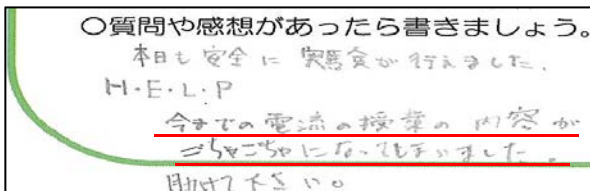 ○質問や感想があったら書きましょう。
本日も安全に実験が行えました.
H・E・L・P
今までの電流の授業の内容が
ごちゃごちゃになってしまいました。
助けて下さい。